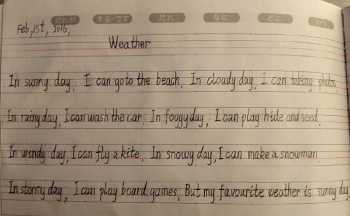 Feb,1st, 2016,
Weather
In sunny day, I can go to the beach. In cloudy day, I can taking photo.
In rainy day, I can wash the car. In foggy day, I can play hide and seed.
In windy day, I can fly a kite. In snowy day, I can make a snowman
In stormy day, I can play board games. But my favourite weather is sunny day